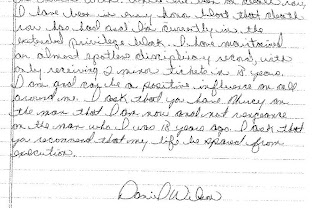 I have been in every honor block that death
row has had and am currently in the
extended privilege block. I have maintained
an almost spotless disciplinary record, with
only receiving 2 minor tickets in 18 years.
I am and can be a positive influence on all
around me. I ask that you have mercy on
the man that I am now and not vengeance
on the man who I was 18 years ago. I ask that
you recommend that my life be spared from
execution.
Daniel Wilson